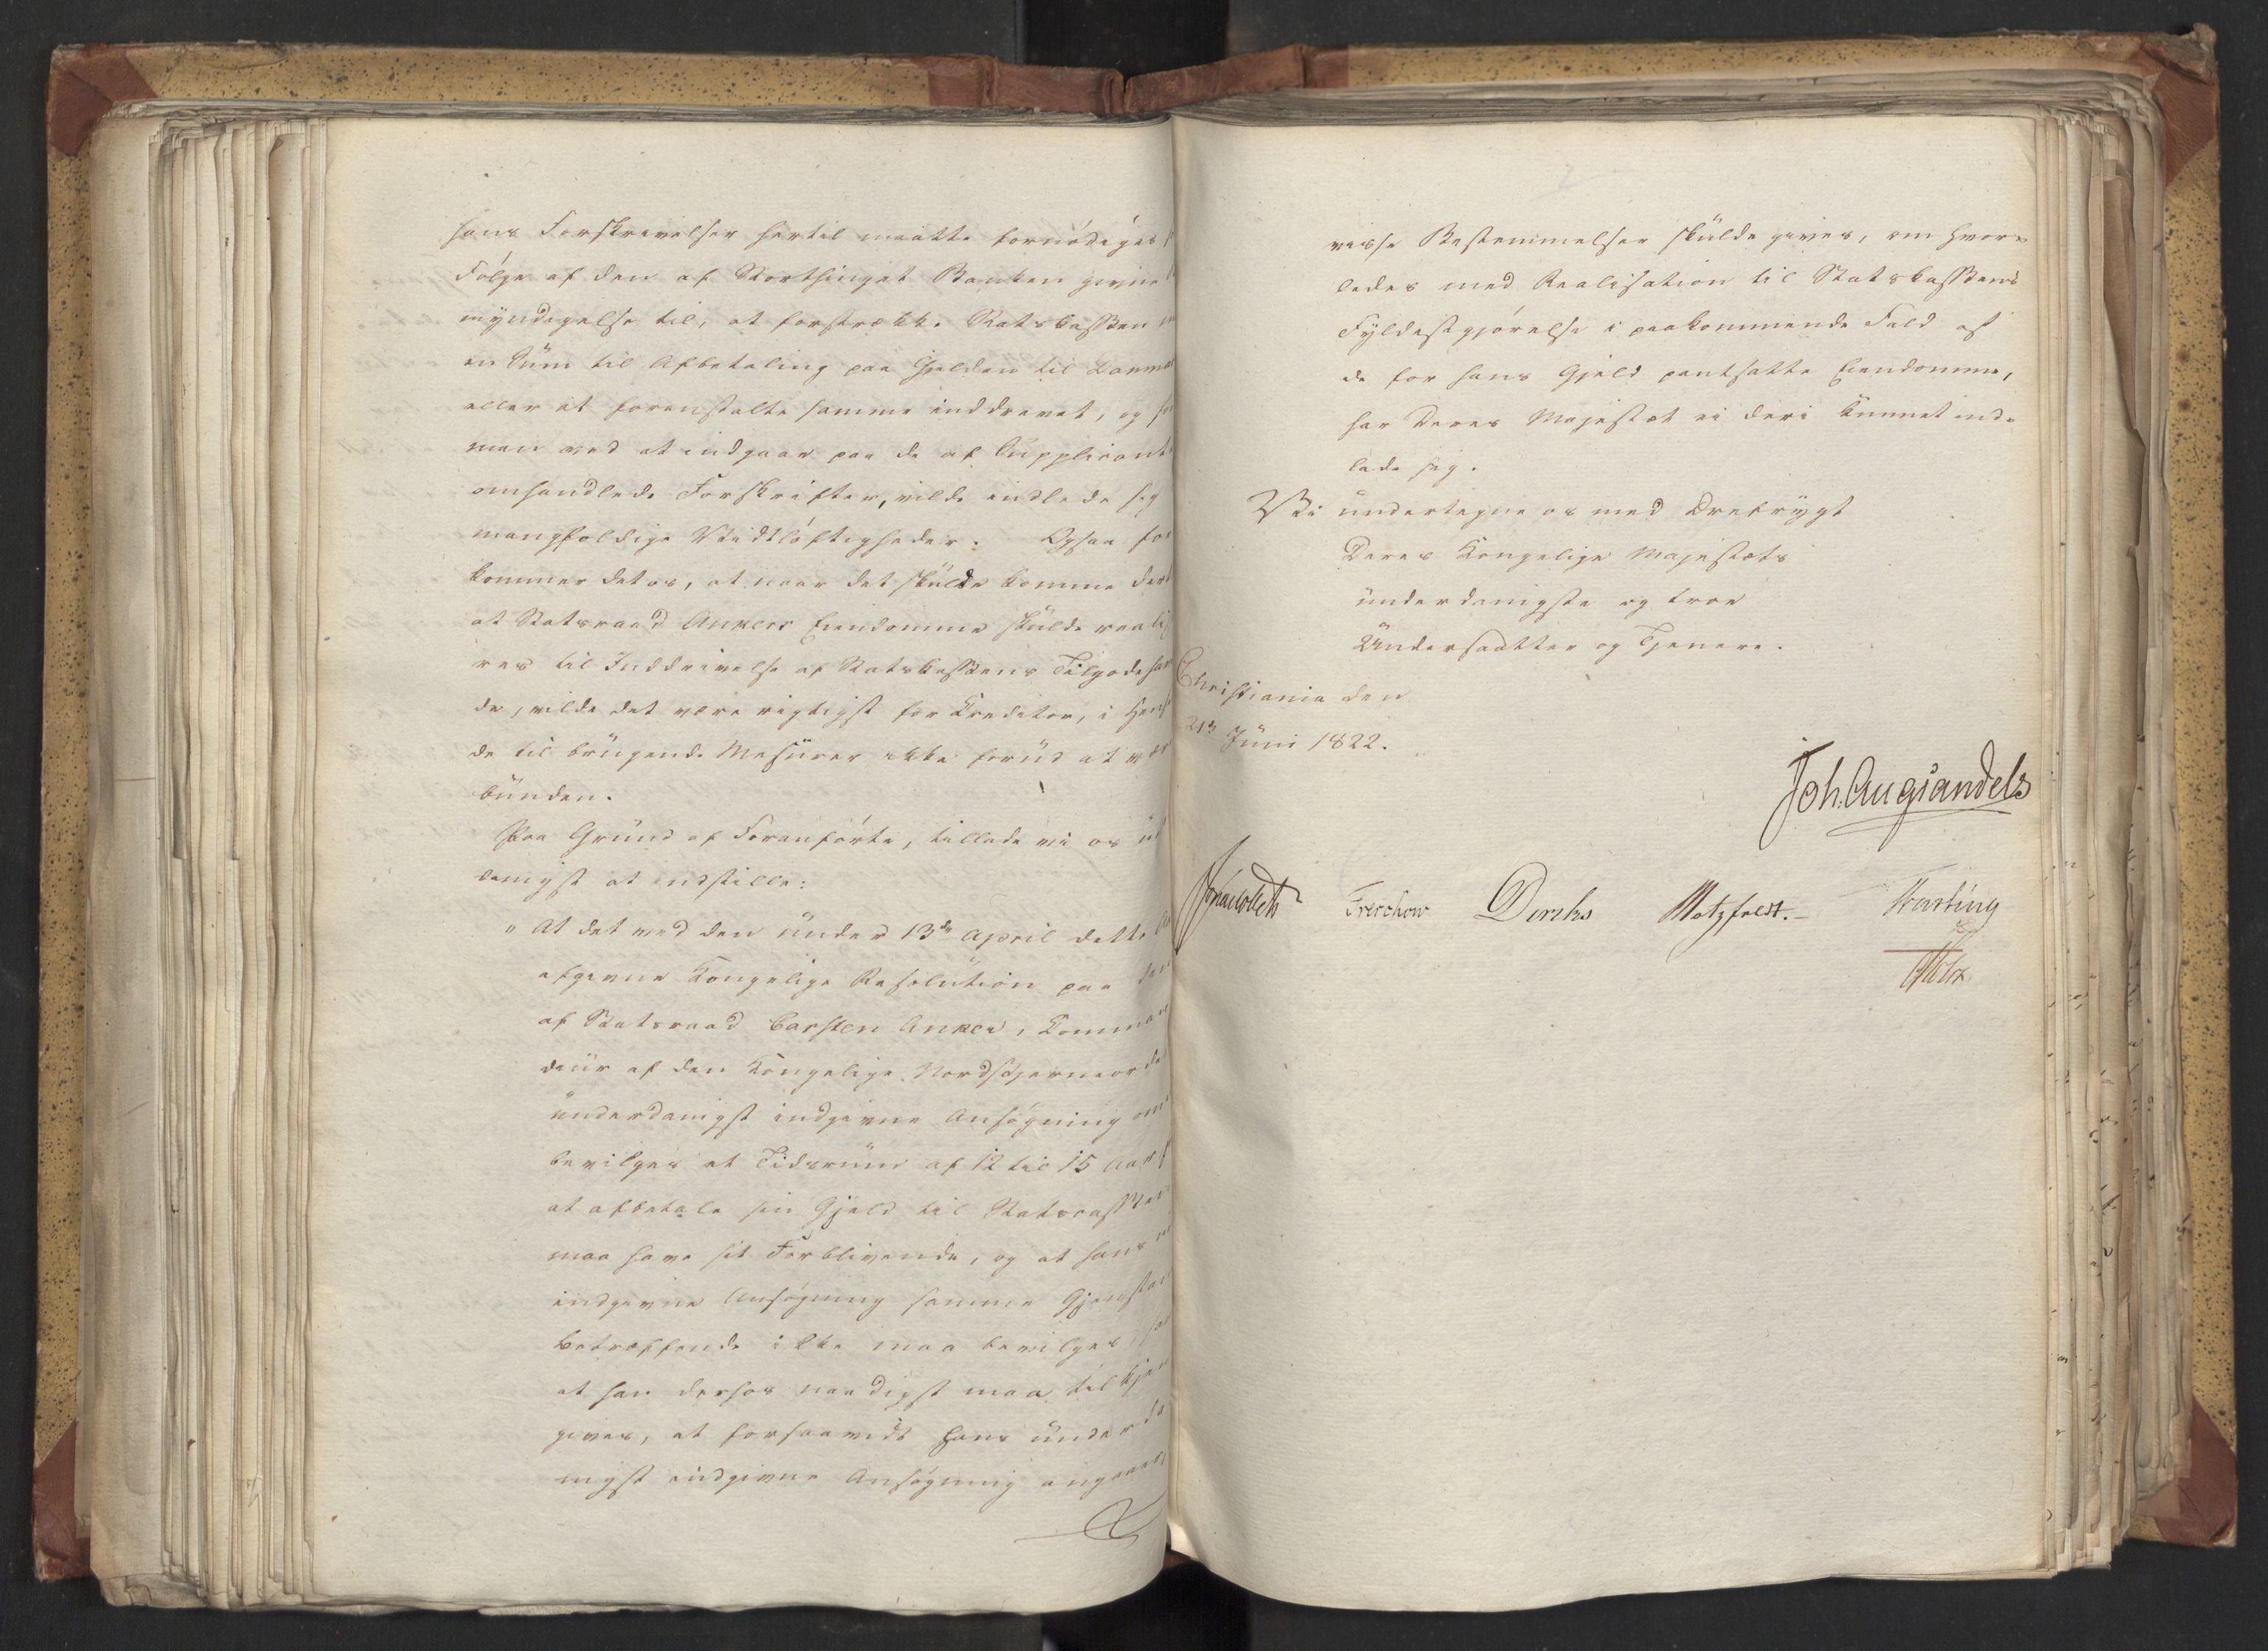 hans Forskrivelser hertil maatte fornødiges
Følge af den af Storthinget Banken givne
myndigelse til, at forstrække Statskassen
en Sum til Afbetaling paa Gjelden til
eller at foranstalte samme inddrevet, og
man ved at indgaae paa de af Supplicant
omhandlede Forskrifter, vilde indlede sig
mangfoldige Vidtløftigheder. Ogsaa for
kommer det os, at naar det skulde komme
at Statsraad Ankers Eiendomme skulde reali
res til Inddrivelse af Statskassens Tilgodehav
de, vilde det være rigtigst for Creditor, i Hens
de til brugende Mesurer ikke forud at vær
bunden.
Paa Grund af Foranførte, tillade vi os
danigst at indstille:
"At det ved den under 13de April dette
afgivne Kongelige Resolution paa den
af Statsraad Carsten Anker, Komman
deur af den Kongelige Nordstjerneorde
underdanigst indgivne Ansøgning om
bevilges et Tidsrum af 12 til 15 Aar
at afbetale sin Gjeld til Statscassen
maa have sit Forblivende, og at hans
indgivne Ansøgning samme Gjenstan
betræffende ikke maa bevilges,
at han derhos naadigst maa tilkjen
gives, at forsaavidt hans underda
nigst indgivne Ansøgning angaaer,
visse Bestemmelser skulde gives, om hvor-
ledes med Realisation til Statskassens
Fyldestgjørelse i paakommende Fald af
de for hans Gjeld pantsatte Eiendomme,
har Deres Majestæt ei deri kunnet ind-
lade sig.
Vi undertegne os med Ærefrygt
Deres Kongelige Majestæts
underdanigste og troe
Undersaatter og Tjenere.
Christiania den
21de Juni 1822.
Joh. Aug Sandels
Jonas Collett Treschow Diriks Motzfeldt. Fasting
Holst